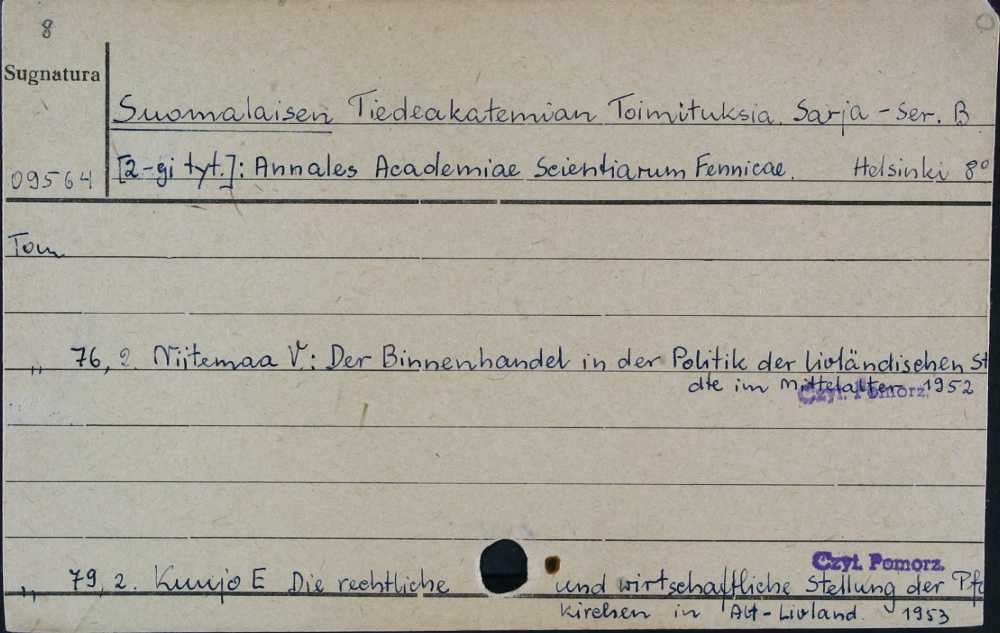 8
Sugnatura
Suomalaisen Tiedeakatemian Toimituksia. Sarja - Ser. B
09564 [2-gi tyt.]: Annales Academiae Scientiarum Fennicae. Helsinki 8°
Tom
„ 76, 2. Niitemaa V.: Der Binnenhandel in der Politik der livländischen St
dte im Mittelalter 1952
Czyt. Pomorz.
Czyt. Pomorz.
„ 79, 2. Kuujo E Die rechtliche und wirtschaftliche Stellung der Pfa
kirchen in Alt-Livland. 1953